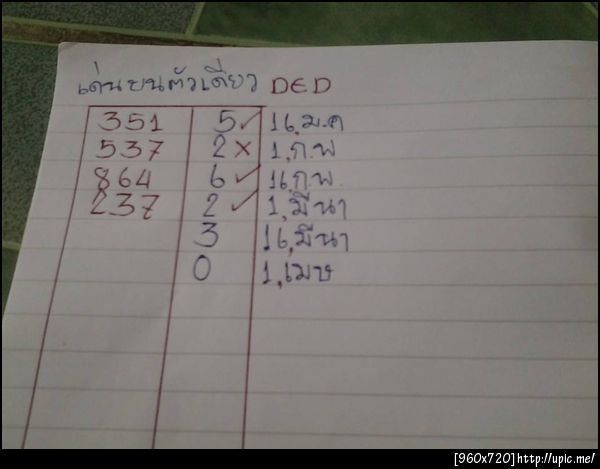 เด่นบนตัวเดียว DED
351 5 ✓ 16,ม.ค
537 2 × 1,ก.พ
864 6 ✓ 16,ก.พ.
237 2 ✓ 1,มีนา
3 16,มีนา
0 1,เมษ
[960x720]http://upic.me/